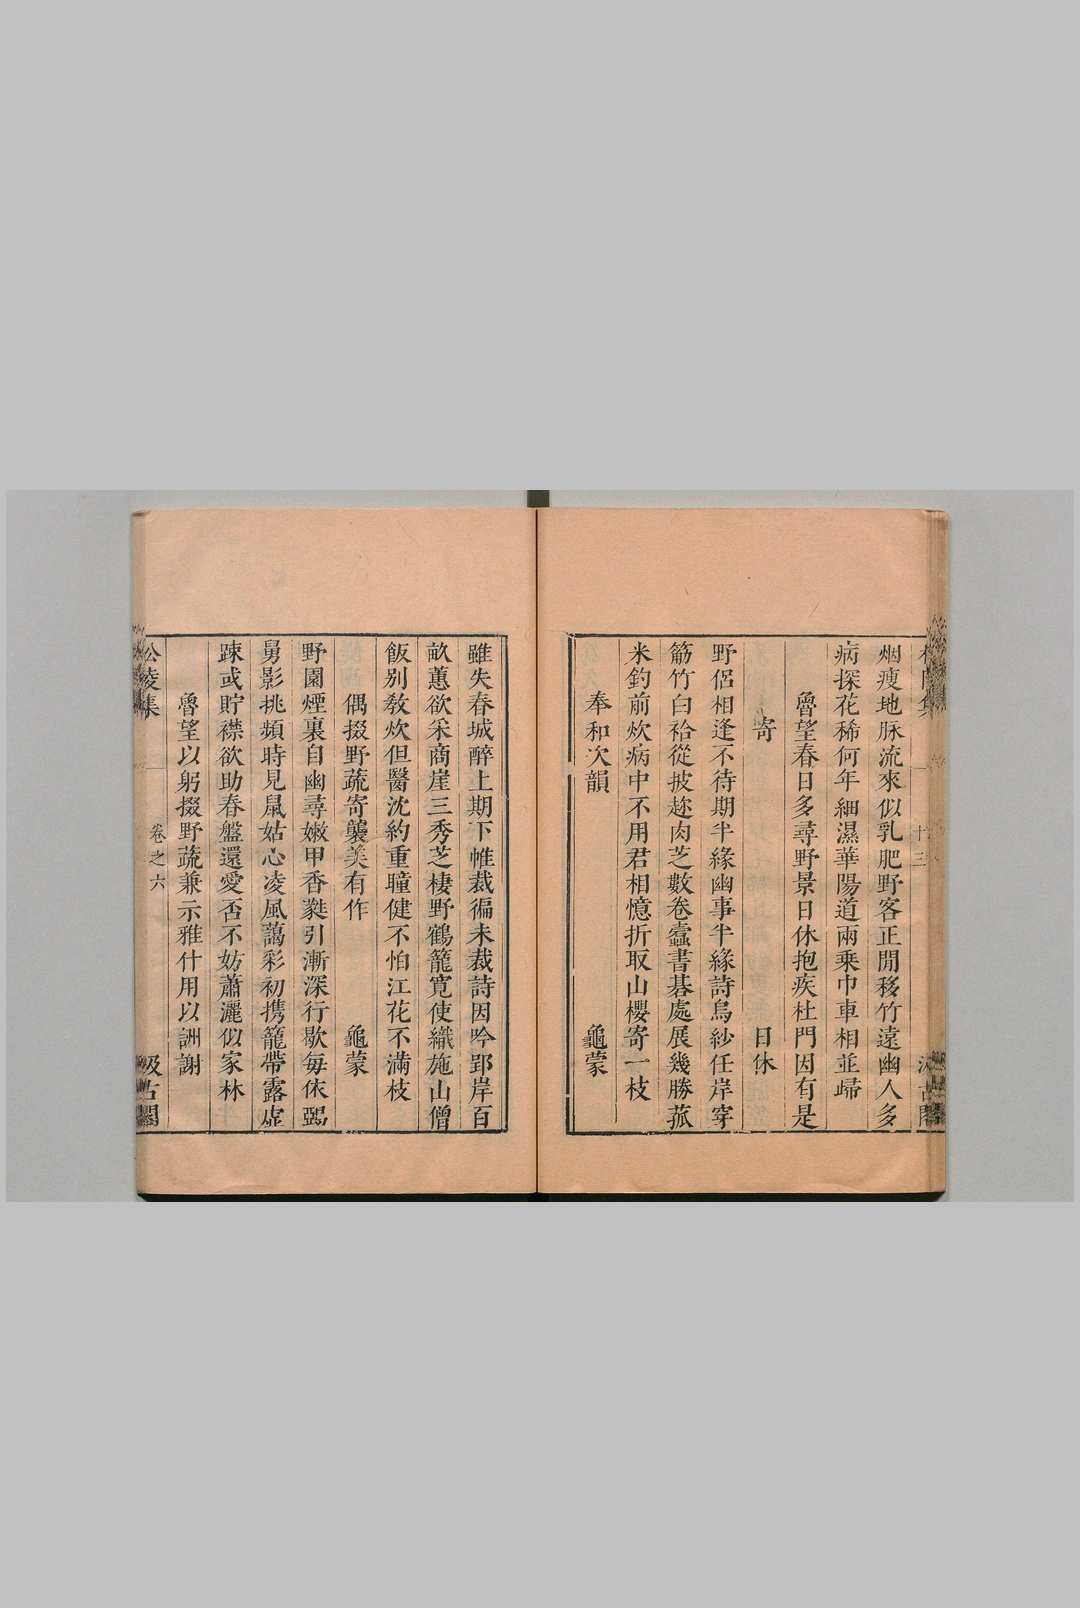 烟瘦地脉流來似乳肥野客正閒移竹遠幽人多
病探花稀何年細濕華陽道兩乘巾車相並歸
魯望春日多尋野景日休抱疾杜門因有是
寄 日休
野侶相逢不待期半緣幽事半緣詩烏紗任岸穿
筋竹白袷從披趂肉芝數卷蠧書碁處展幾勝菰
米釣前炊病中不用君相憶折取山櫻寄一枝
奉和次韻 龜蒙
雖失春城醉上期下帷裁徧未裁詩因吟郢岸百
畝蕙欲采商崖三秀芝棲野鶴籠寛使織施山僧
飯别敎炊但醫沈約重瞳健不怕江花不滿枝
偶掇野蔬寄襲美有作 龜蒙
野園煙裏自幽尋嫩甲香蕤引漸深行歇每依鵶
舅影挑頻時見鼠姑心凌風藹彩初携籠帶露虛
疎或貯襟欲助春盤還愛否不妨蕭灑似家林
魯望以躬掇野蔬兼示雅什用以詶謝
松陵集 卷之六 汲古閣